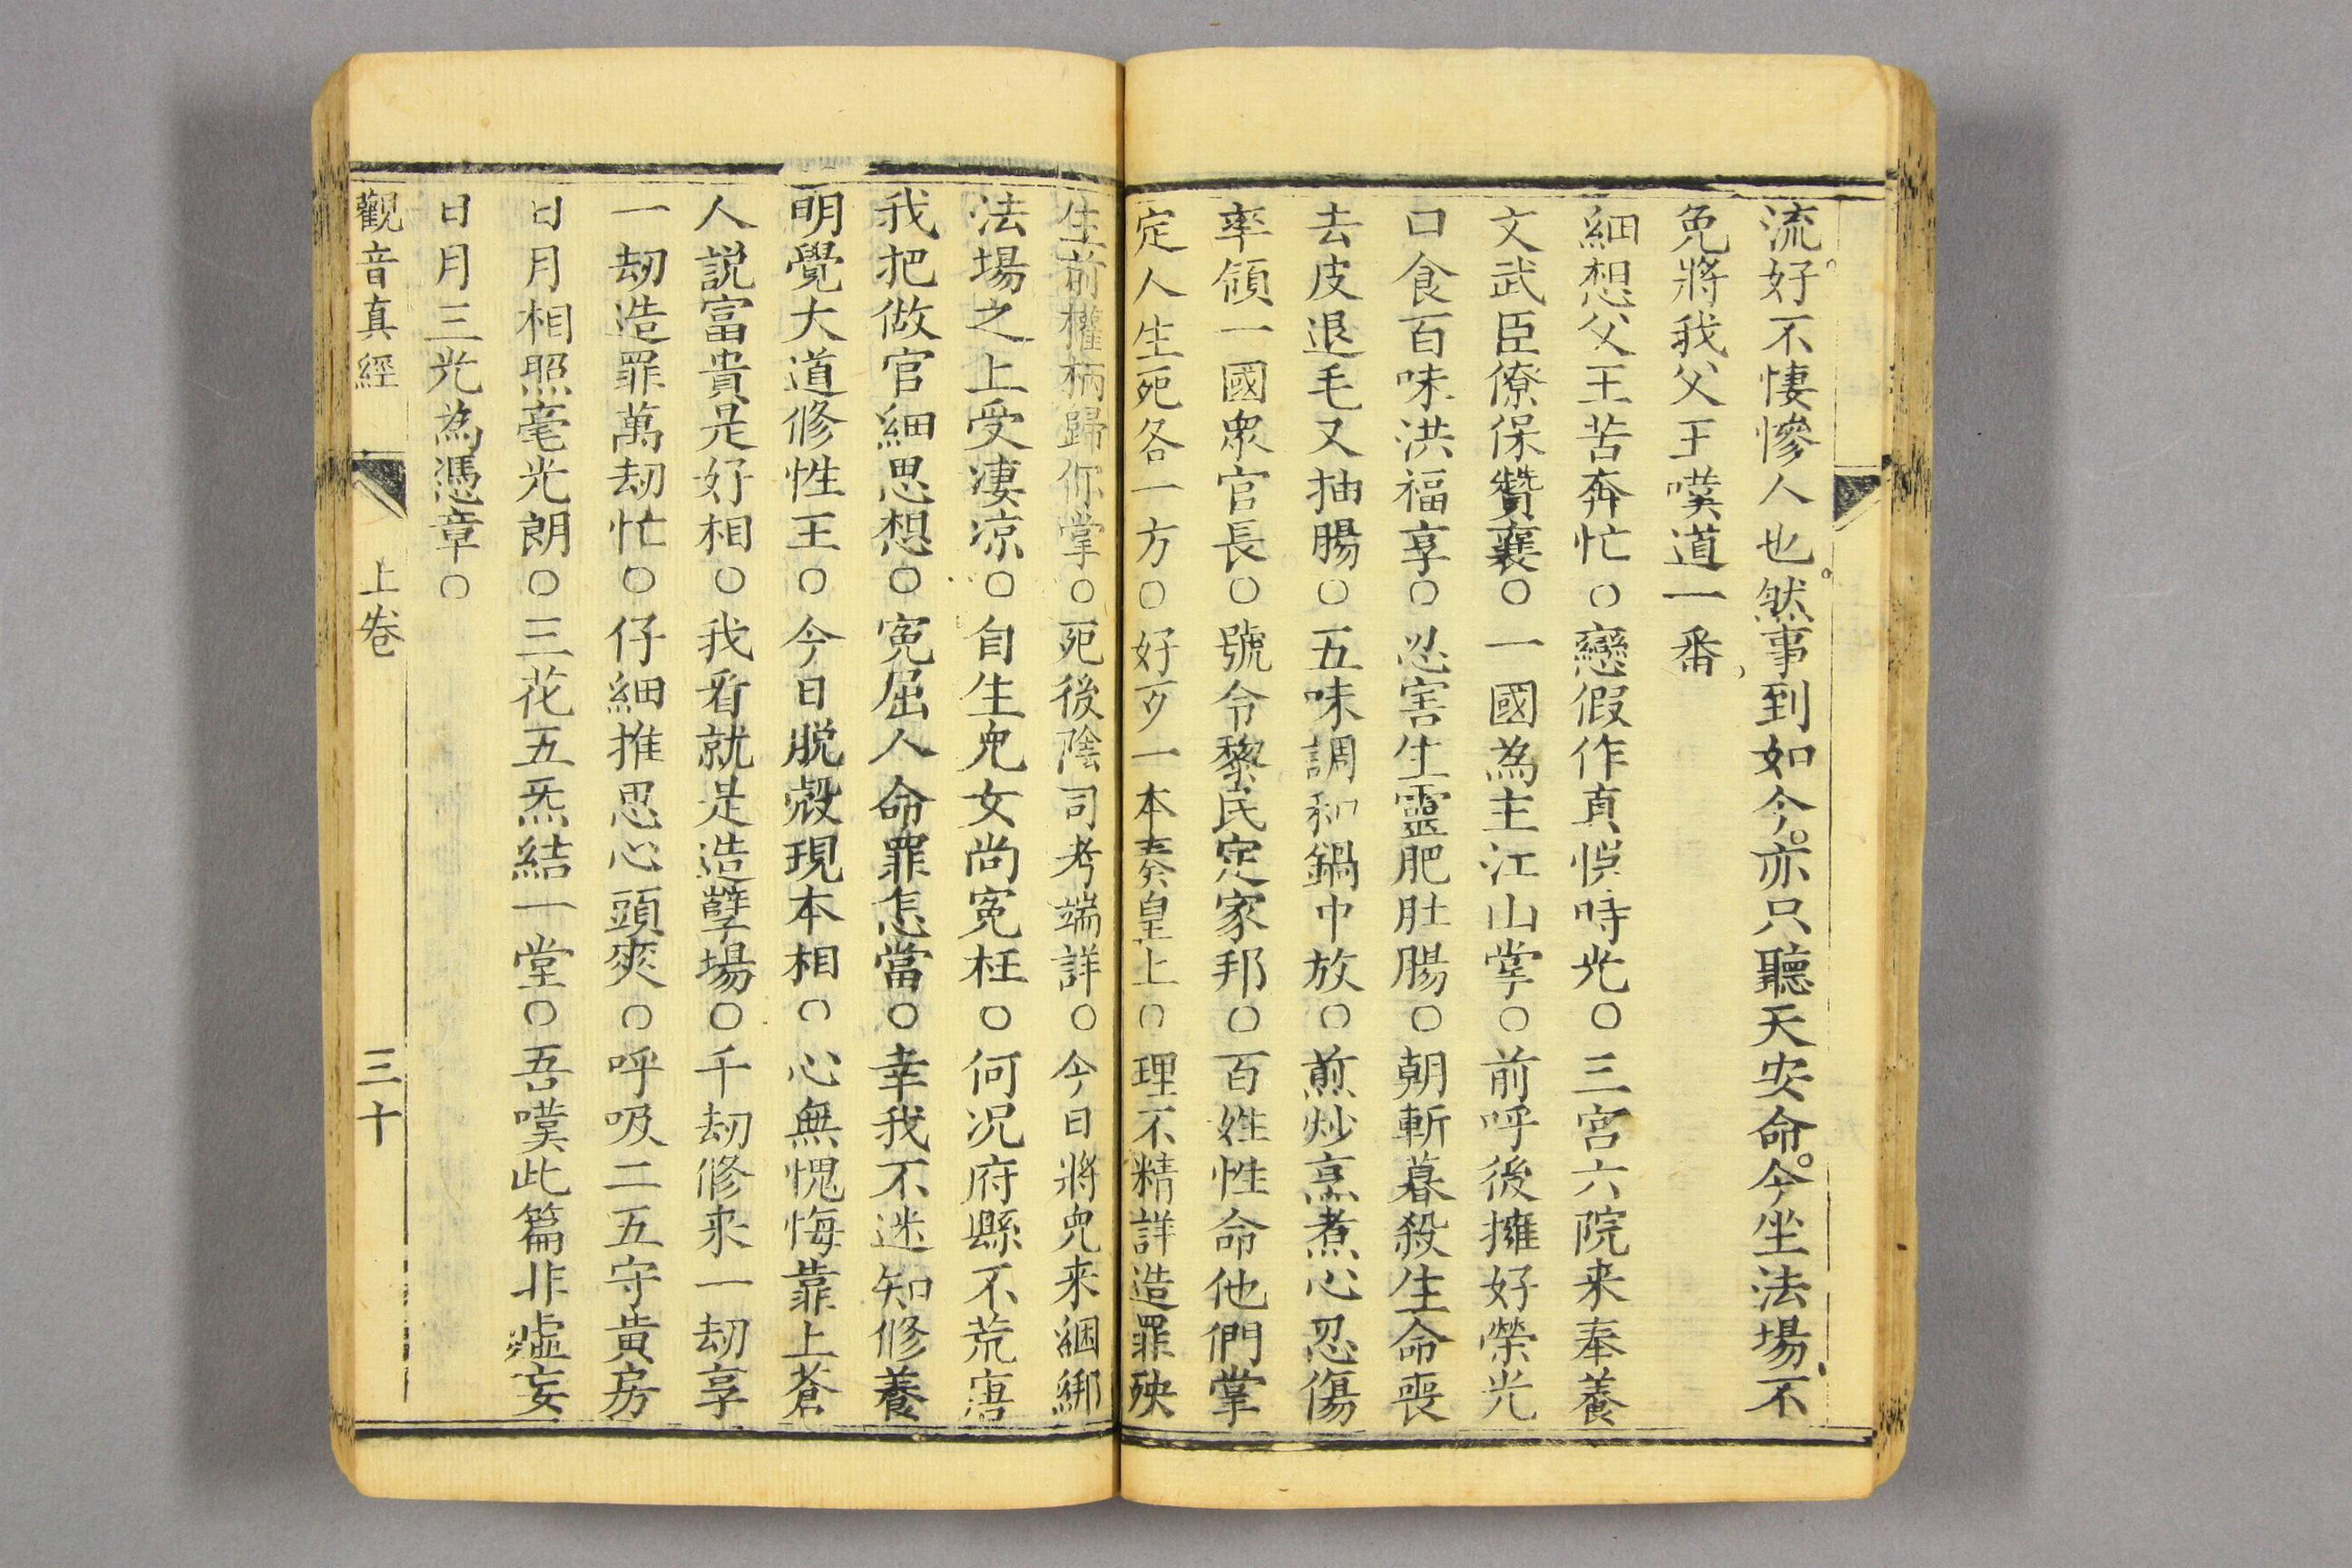 流。好不悽慘人也。然事到如今。亦只聽天安命。今坐法場。不
免將我父王嘆道一番、
細想父王苦奔忙○戀假作真悞時光○三宮六院来奉養
文武臣僚保贊襄○一國為主江山掌○前呼後擁好榮光
口食百味洪福享○忍害生靈肥肚腸○朝斬暮殺生命喪
去皮退毛又抽腸○五味調和鍋中放○煎炒烹煮心忍傷
率領一國衆官長○號令黎民定家邦○百姓性命他們掌
定人生死各一方○好歹一本奏皇上○理不精詳造罪殃
生前權柄歸你掌○死後陰司考端詳○今日將兒来綑綁
法場之上受凄凉○自生兒女尚寃枉○何况府縣不荒唐
我把做官細思想○寃屈人命罪怎當○幸我不迷知修養
明覺大道修性王○今日脱殼現本相○心無愧悔靠上蒼
人説富貴是好相○我看就是造孽場○千刼修来一刼享
一刼造罪萬刼忙○仔細推思心頭爽○呼吸二五守黄房
日月相照毫光朗○三花五炁結一堂○吾嘆此篇非虛妄
日月三光為憑章○
觀音真經 上卷 三十